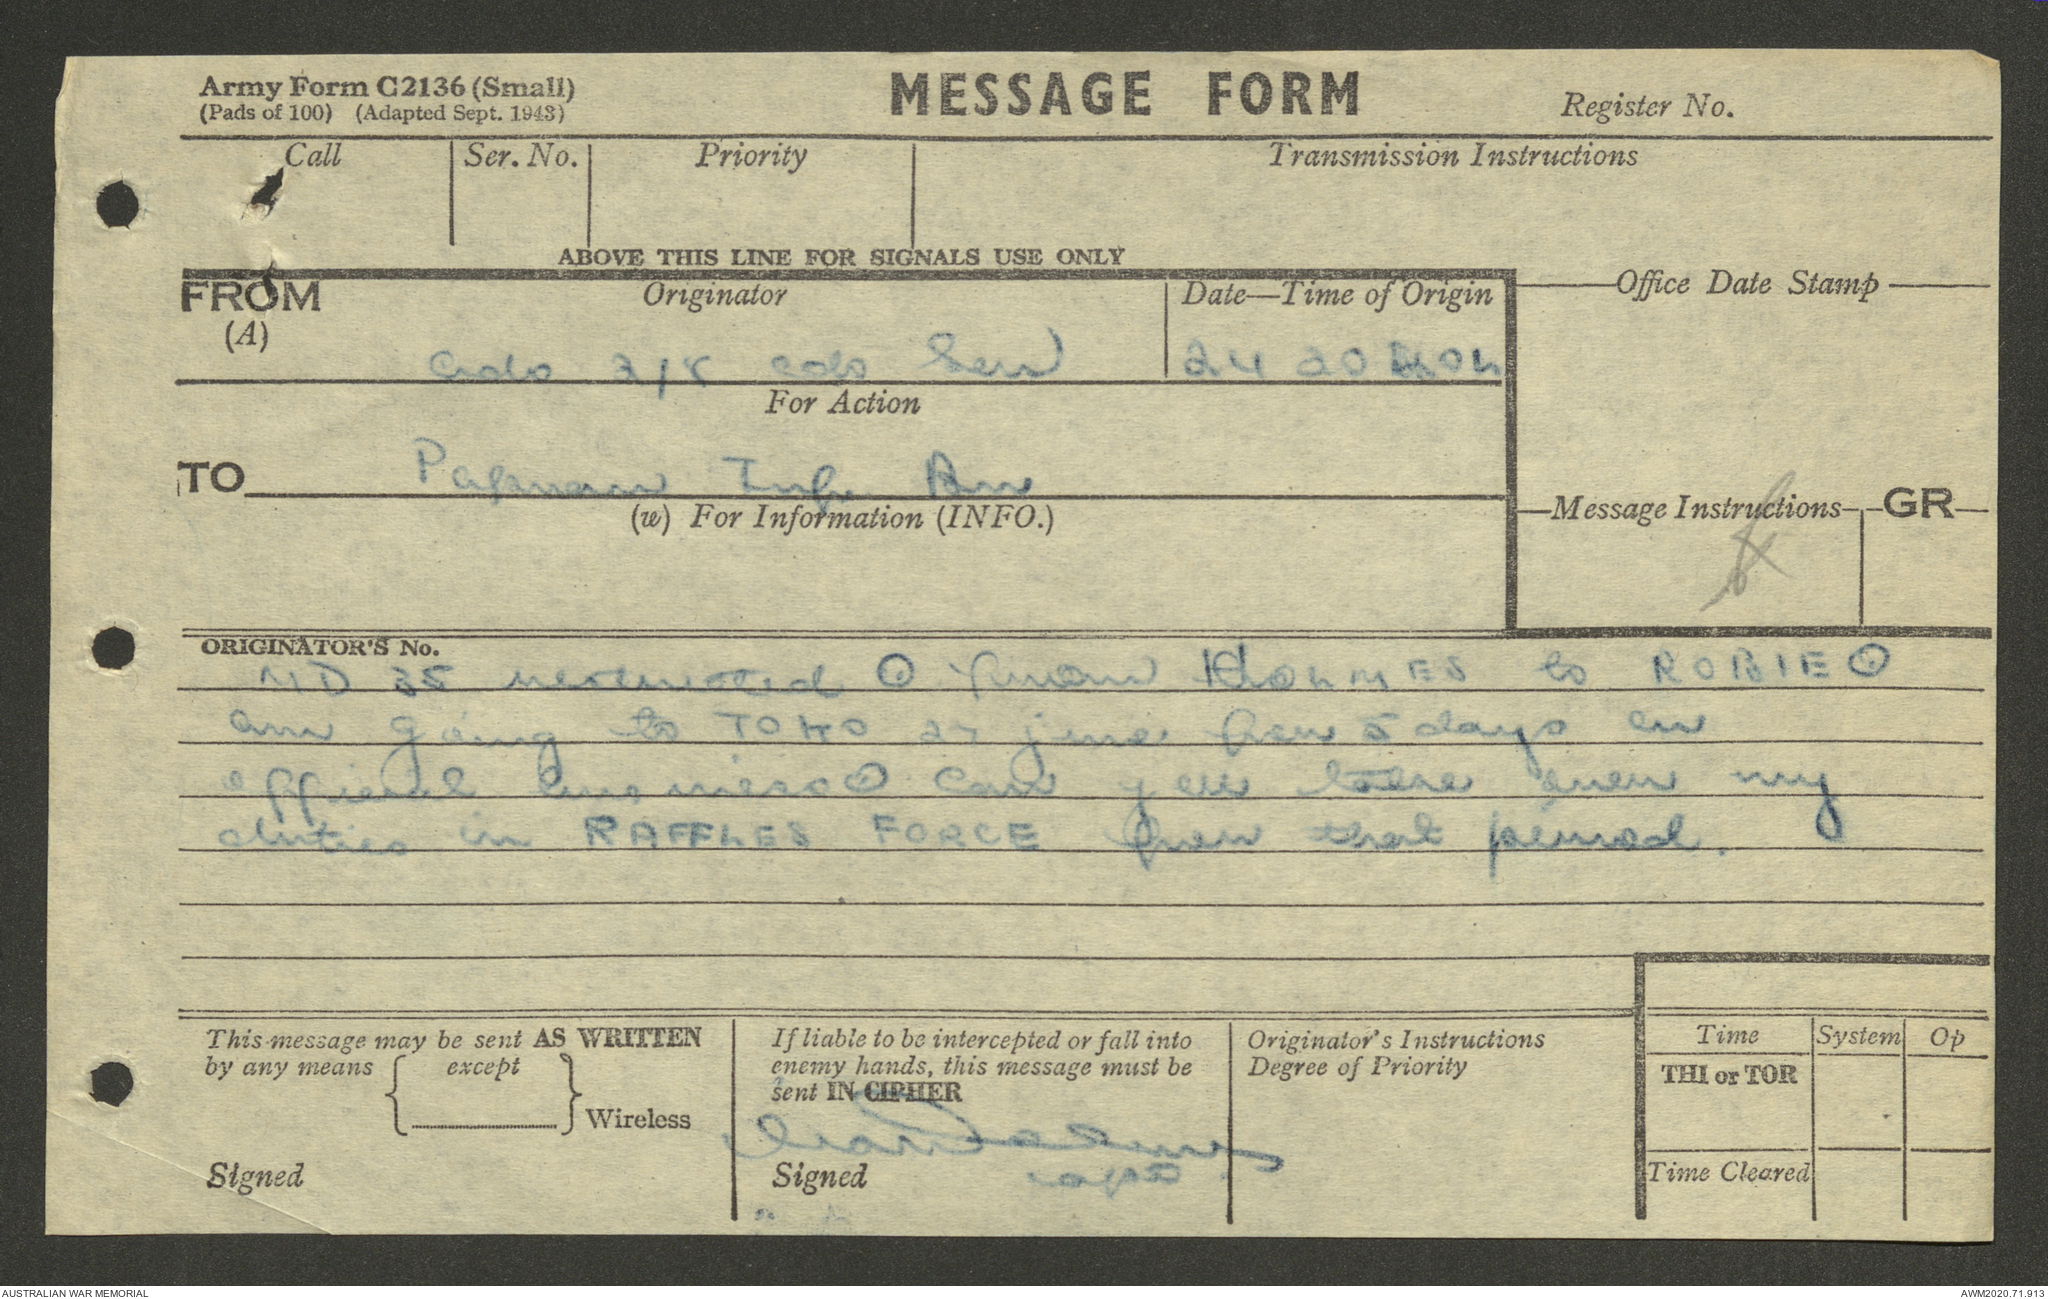 Army Form C2136 (Small)
(Pads of 100) (Adapted Sept. 1943)
MESSAGE FORM
Register No.
Call
Ser. No.
Priority
Transmission Instructions
ABOVE THIS LINE FOR SIGNALS USE ONLY
FROM
(A)
Originator
Date—Time of Origin
Office Date Stamp
2/8 cdo
For Action
TO
Papuan Inf Bn
(w) For Information (INFO.)
Message Instructions
GR
ORIGINATOR'S No.
MD 35 restricted ⊙ from HOLMES to ROBIE ⊙
am going to TOKO 27 june for 5 days on
official business ⊙ can you take over my
duties in RAFFLES FORCE for that period.
This message may be sent AS WRITTEN
by any means
except
Wireless
Signed
If liable to be intercepted or fall into
enemy hands, this message must be
sent IN CIPHER
Signed
capt
Originator's Instructions
Degree of Priority
Time
System
Op
THI or TOR
Time Cleared
AUSTRALIAN WAR MEMORIAL
AWM2020.71.913